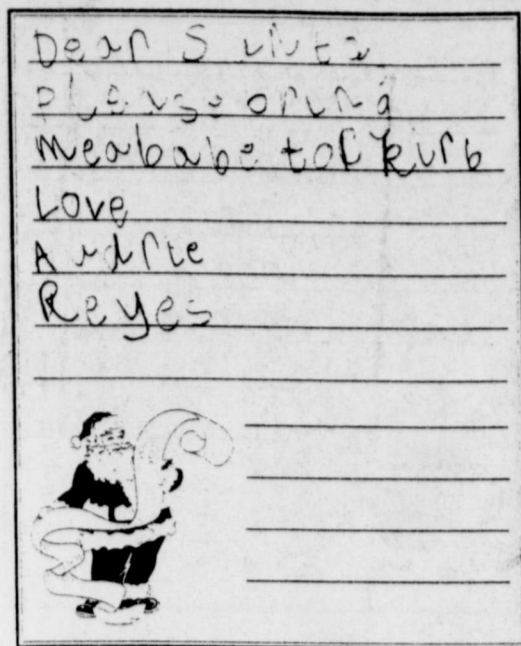 Dear Santa
Please bring
me a babe tof kurb
Love
Audrie
Reyes